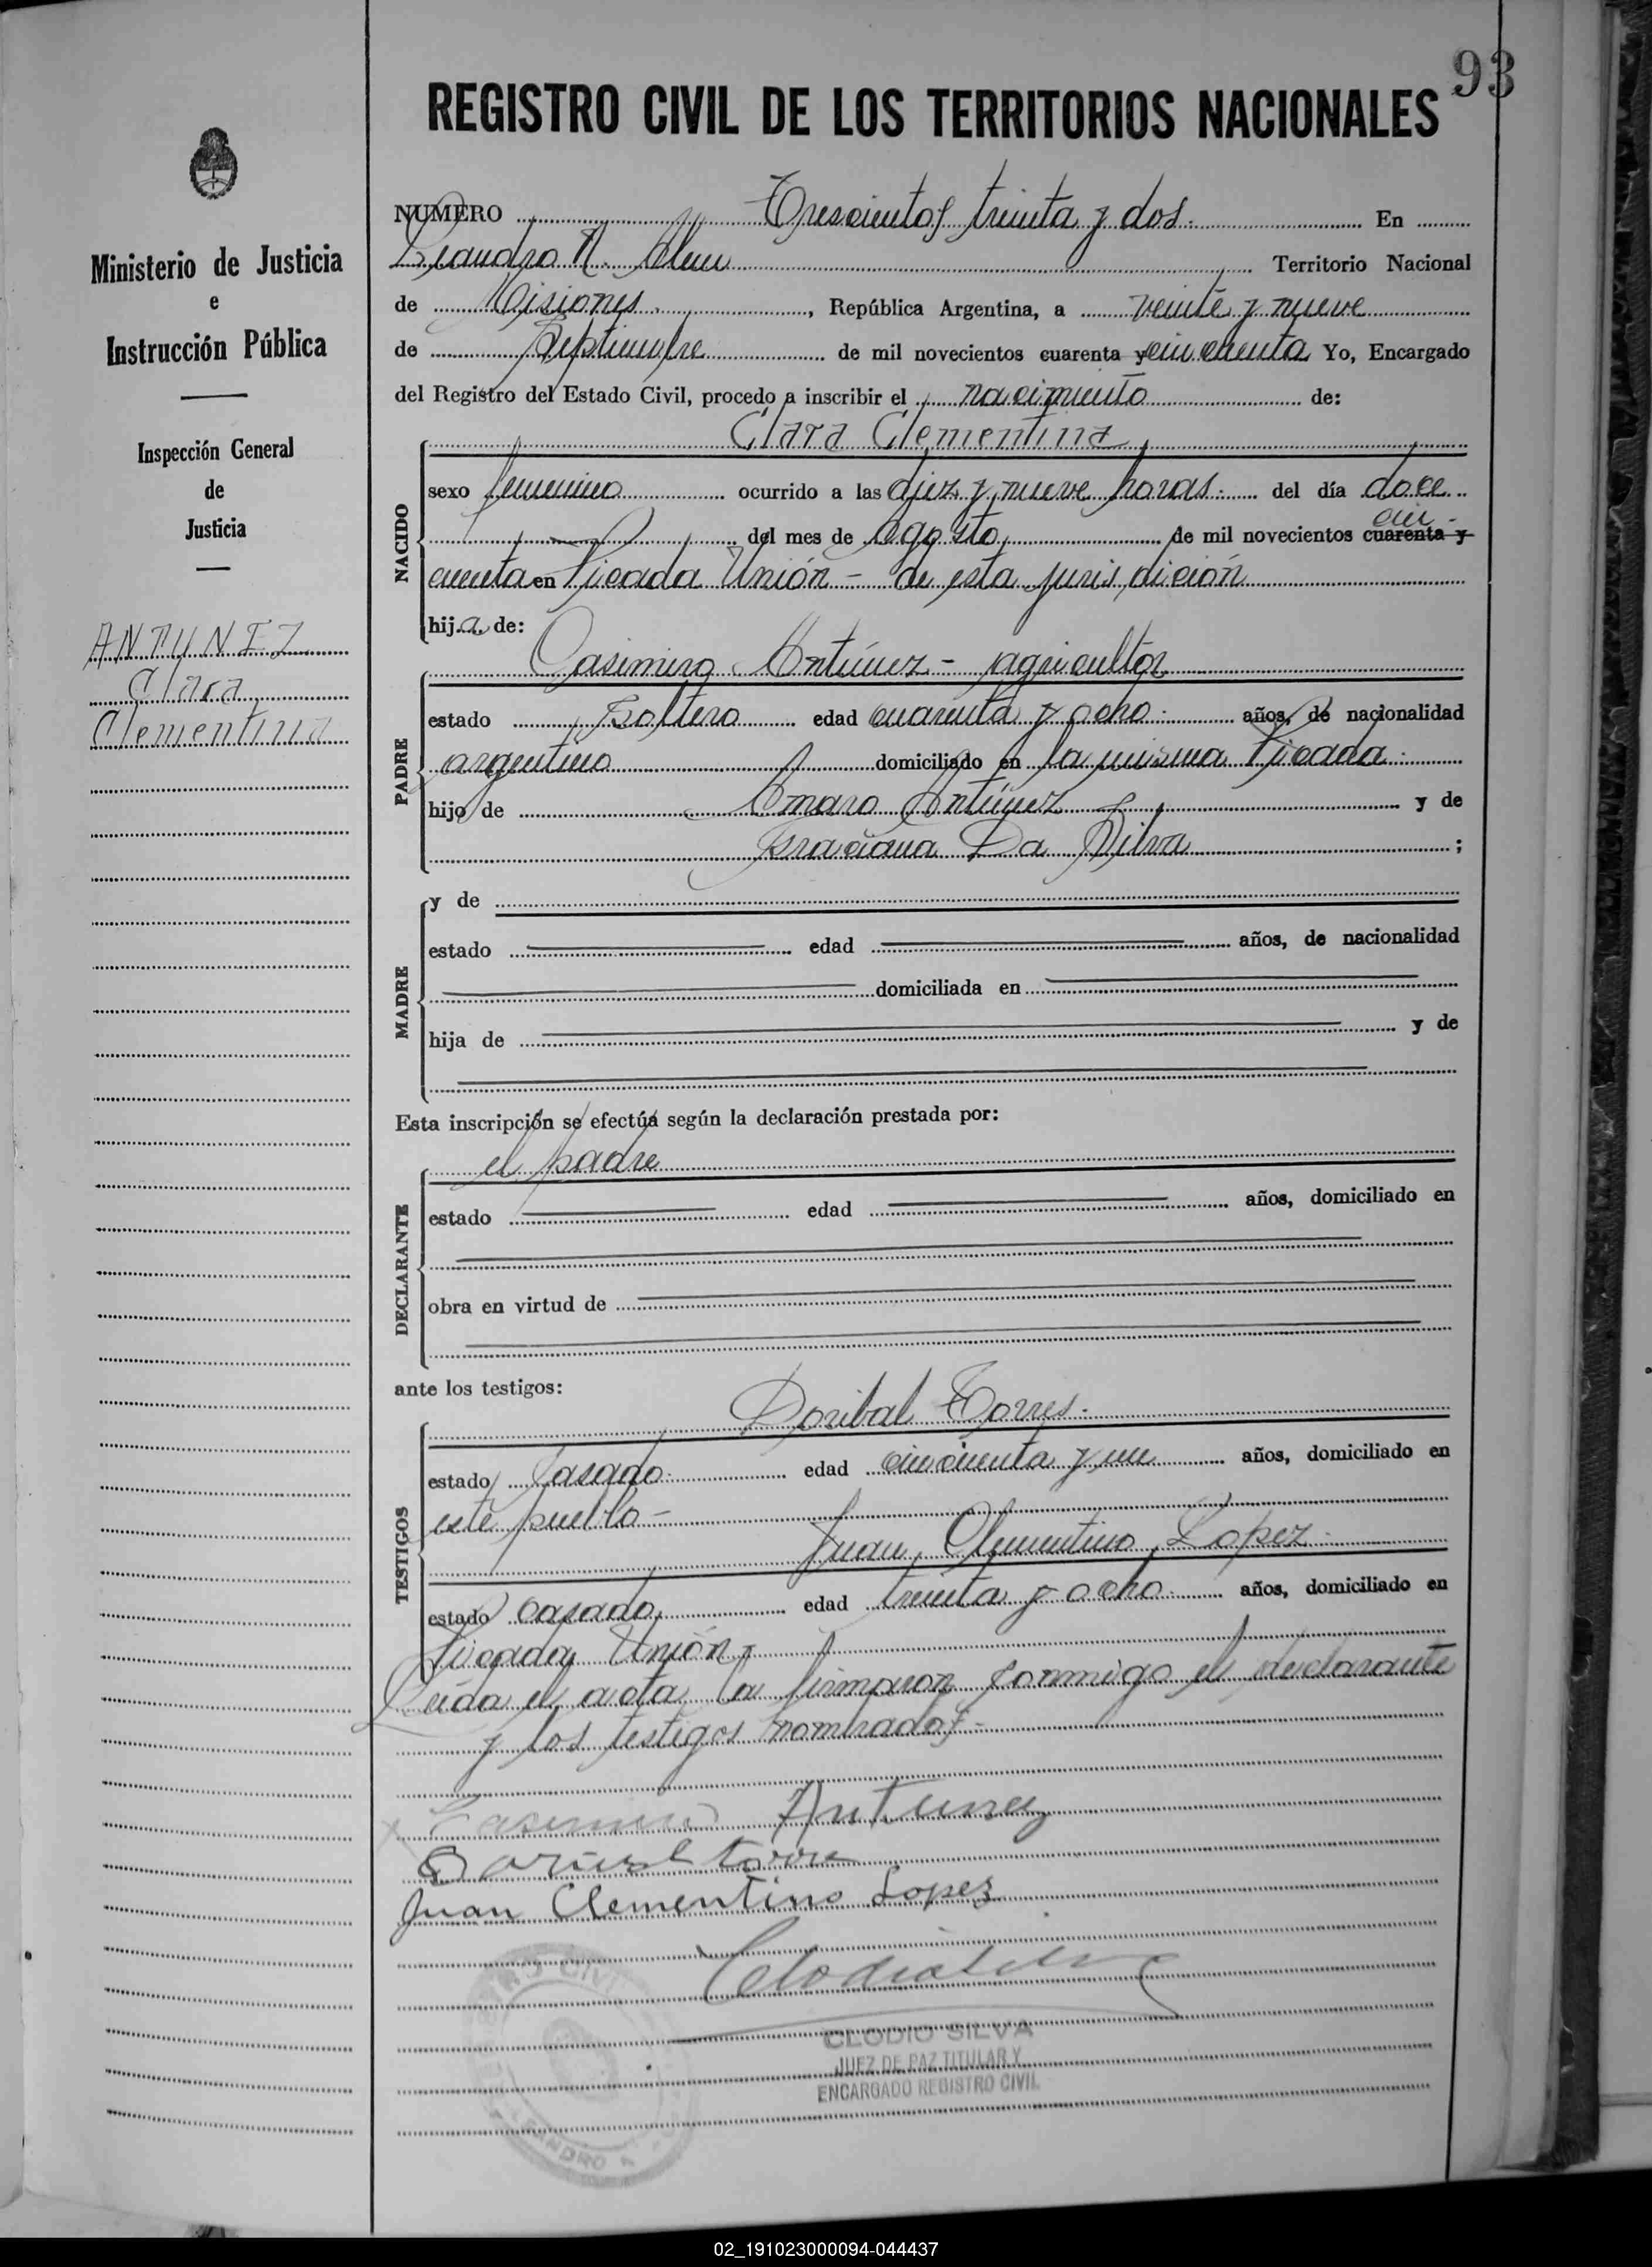 93
REGISTRO CIVIL DE LOS TERRITORIOS NACIONALES
Ministerio de Justicia
e
Instrucción Pública
Inspección General
de
Justicia
ANTUNEZ
Clara
Clementina
NUMERO Trescientos treinta y dos. En
Leandro N. Alem Territorio Nacional
de Misiones, República Argentina, a veinte y nueve
de Septiembre de mil novecientos cuarenta y cincuenta Yo, Encargado
del Registro del Estado Civil, procedo a inscribir el nacimiento de:
Clara Clementina
NACIDO
sexo femenino ocurrido a las diez y nueve horas. del día doce
del mes de Agosto de mil novecientos cuarenta y cin-
cuenta en Picada Unión - de esta jurisdición
hija de:
Casimiro Antúnez - agricultor
PADRE
estado soltero edad cuarenta y ocho. años, de nacionalidad
argentino domiciliado en la misma Picada.
hijo de Amaro Antúnez y de
Graciana Da Silva ;
MADRE
y de
estado edad años, de nacionalidad
domiciliada en
hija de y de
Esta inscripción se efectúa según la declaración prestada por:
el padre
DECLARANTE
estado edad años, domiciliado en
obra en virtud de
ante los testigos:
Doribal Torres.
TESTIGOS
estado Casado. edad cincuenta y un años, domiciliado en
este pueblo -
Juan Clementino Lopez.
estado Casado edad treinta y ocho. años, domiciliado en
Picada Unión
Leida el acta la firmaron conmigo el declarante
y los testigos nombrados.-
Casimiro Antunez
torre
Juan Clementino Lopez
Clodio Silva
CLODIO SILVA
JUEZ DE PAZ TITULAR Y
ENCARGADO REGISTRO CIVIL
02_191023000094-044437